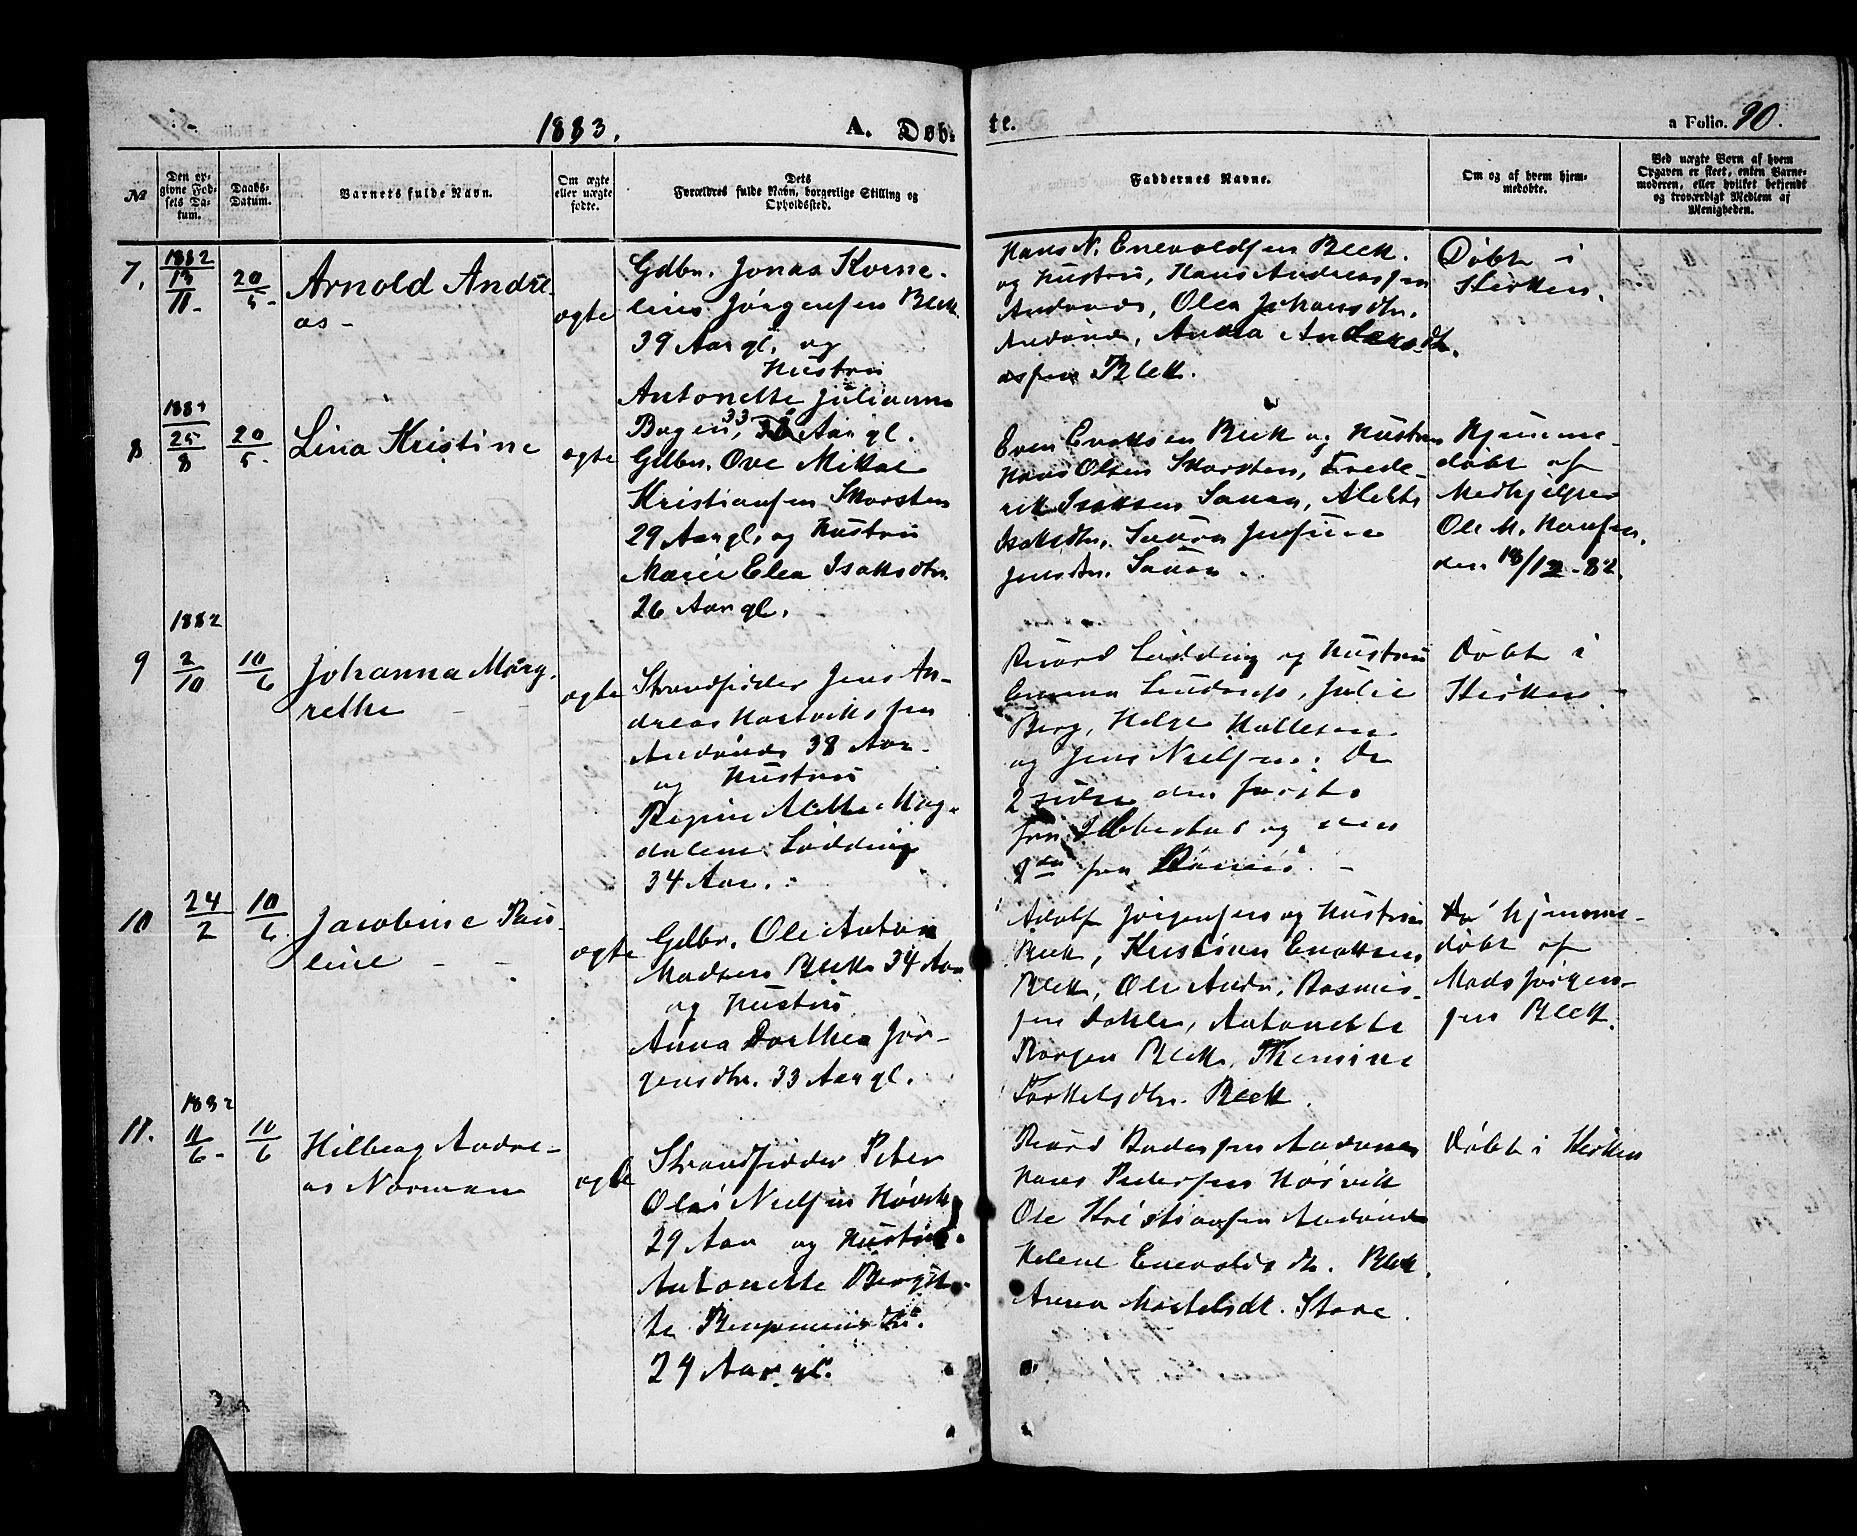 1883.
A. Døb-
te.
a Folio. 90.
№
Den opgivne Fødsels Datum.
Daabs-Datum.
Barnets fulde Navn.
Om ægte eller uægte fødte.
Dets Forældres fulde Navn, borgerlige Stilling og Opholdssted.
Faddernes Navne.
Om og af hvem hjemmedøbte.
Ved uægte Børn af hvem Opgaven er skeet, enten Barnemoderen, eller hvilket bekjendt og troværdigt Medlem af Menigheden.
7.
1882
13/11
20/5
Arnold Andre-
as -
ægte
Gdbr. Jonas Korne-
lius Jørgensen Bleik
39 Aar gl. og
Hustru
Antonette Julianna
33 Aar gl.
Hans N. Enevoldsen Bleik.
og Hustru, Hans Andreassen
Andenes, Olea Johansdtr.
Andenes, Anna
Bleik.
Døbt i
Kirken.
8
25/8
20/5
Lina Kristine
ægte
Gdbr. Ove Mikal
Kristiansen Skorsten
29 Aar gl. og Hustru
Marie Elea Isaksdtr.
26 Aar gl.
Even Enoksen Bleik og Hustru
Hans Olsen Skorsten, Frede-
rik Isaksen Saura,
Isaksdtr. Saura
Jensdtr. Saura.
Hjemme-
døbt af
Medhjelper
Ole M. Hansen.
den 18/12 - 82.
9
1882
2/10
10/6
Johanna Marg-
rethe - -
ægte
Strandsidder Jens An-
dreas Hartviksen
Andenes 38 Aar
og Hustru
Regine Alette Mag-
dalena Lødding
34 Aar.
Lødding og Hustru
Julie
Berg, Helge Hallesen
og Jens Nielsen. De
2 sidste den første
fra Ibbestad og den
2den fra
Døbt i
Kirken.
10
24/2
10/6
Jacobine Pau-
line - -
ægte
Gdbr. Ole Anton
Madsen Bleik 34 Aar
og Hustru
Anna Dorthea Jør-
gensdtr. 33 Aar gl.
Adolf Jørgensen og Hustru
Bleik, Kristian Enoksen
Bleik, Ole Andr. Rasmus-
sen Antonette
Borgen Bleik,
Torkelsdtr. Bleik.
hjemme-
døbt af
Mads Jørgen-
sen Bleik.
11.
1882
11/6
10/6
Hilberg Andre-
as Norman
ægte
Strandsidder Peter
Olai Nielsen
29 Aar og Hustru
Antonette Bergit-
te
24 Aar gl.
Andenes
Hans Pedersen
Ole Kristiansen Andenes
Helene Enevoldsdtr. Bleik.
Anna Stave.
Døbt i Kirken